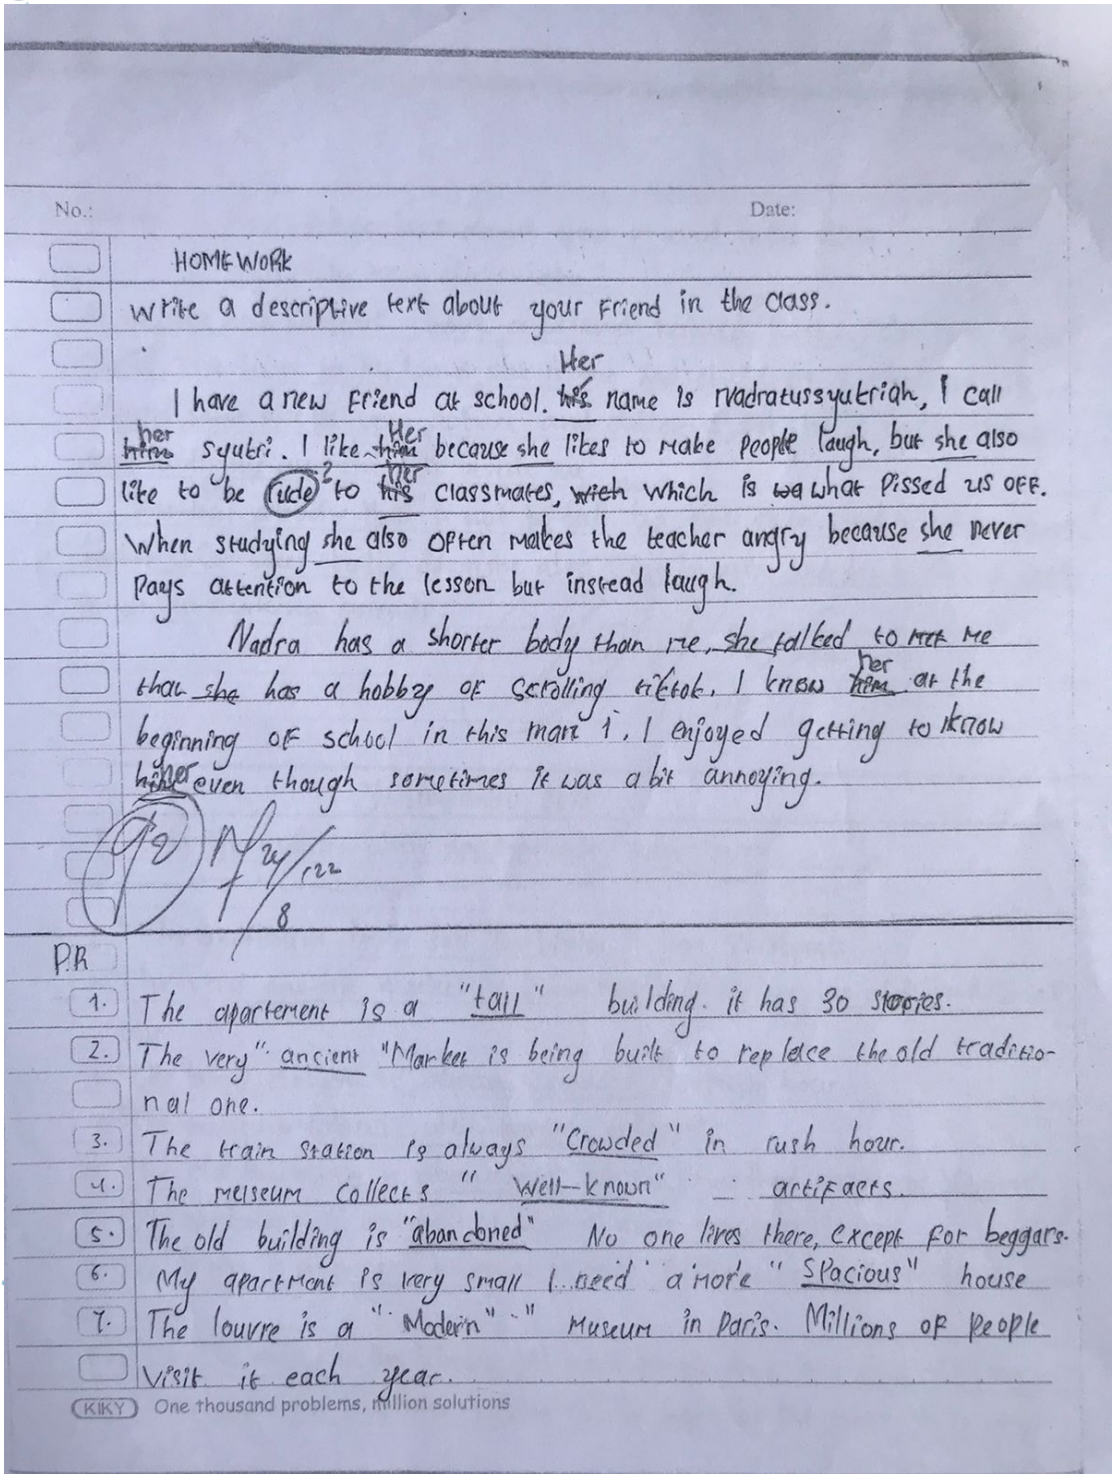 No.: Date:
HOMEWORK
Write a descriptive text about your Friend in the class.
Her
I have a new Friend at school. his name is Nadratussyukriah, I call
her Her
him syukri. I like him because she likes to make people laugh, but she also
her
like to be rude? to his classmates, with which is wa what Pissed us OFF.
When studying she also often makes the teacher angry because she never
Pays attention to the lesson but instead laugh.
Nadra has a shorter body than me, she talked to me
her
that she has a hobby OF Scrolling tiktok. I know him at the
beginning OF school in this man 1. I enjoyed getting to know
her even though sometimes it was a bit annoying.
92 24/8/22
P.R
1. The apartement is a "tall" building. it has 30 stories.
2. The very "ancient" Market is being built to replace the old traditio-
nal one.
3. The train Station is always "Crowded" in rush hour.
4. The meiseum Collects "Well-known" artiFaers.
5. The old building is "abandoned" No one lives there, except for beggars.
6. My apartment is very small I need a more "Spacious" house
7. The louvre is a "Modern" " Museum in Paris. Millions OF People
Visit it each year.
KIKY One thousand problems, million solutions